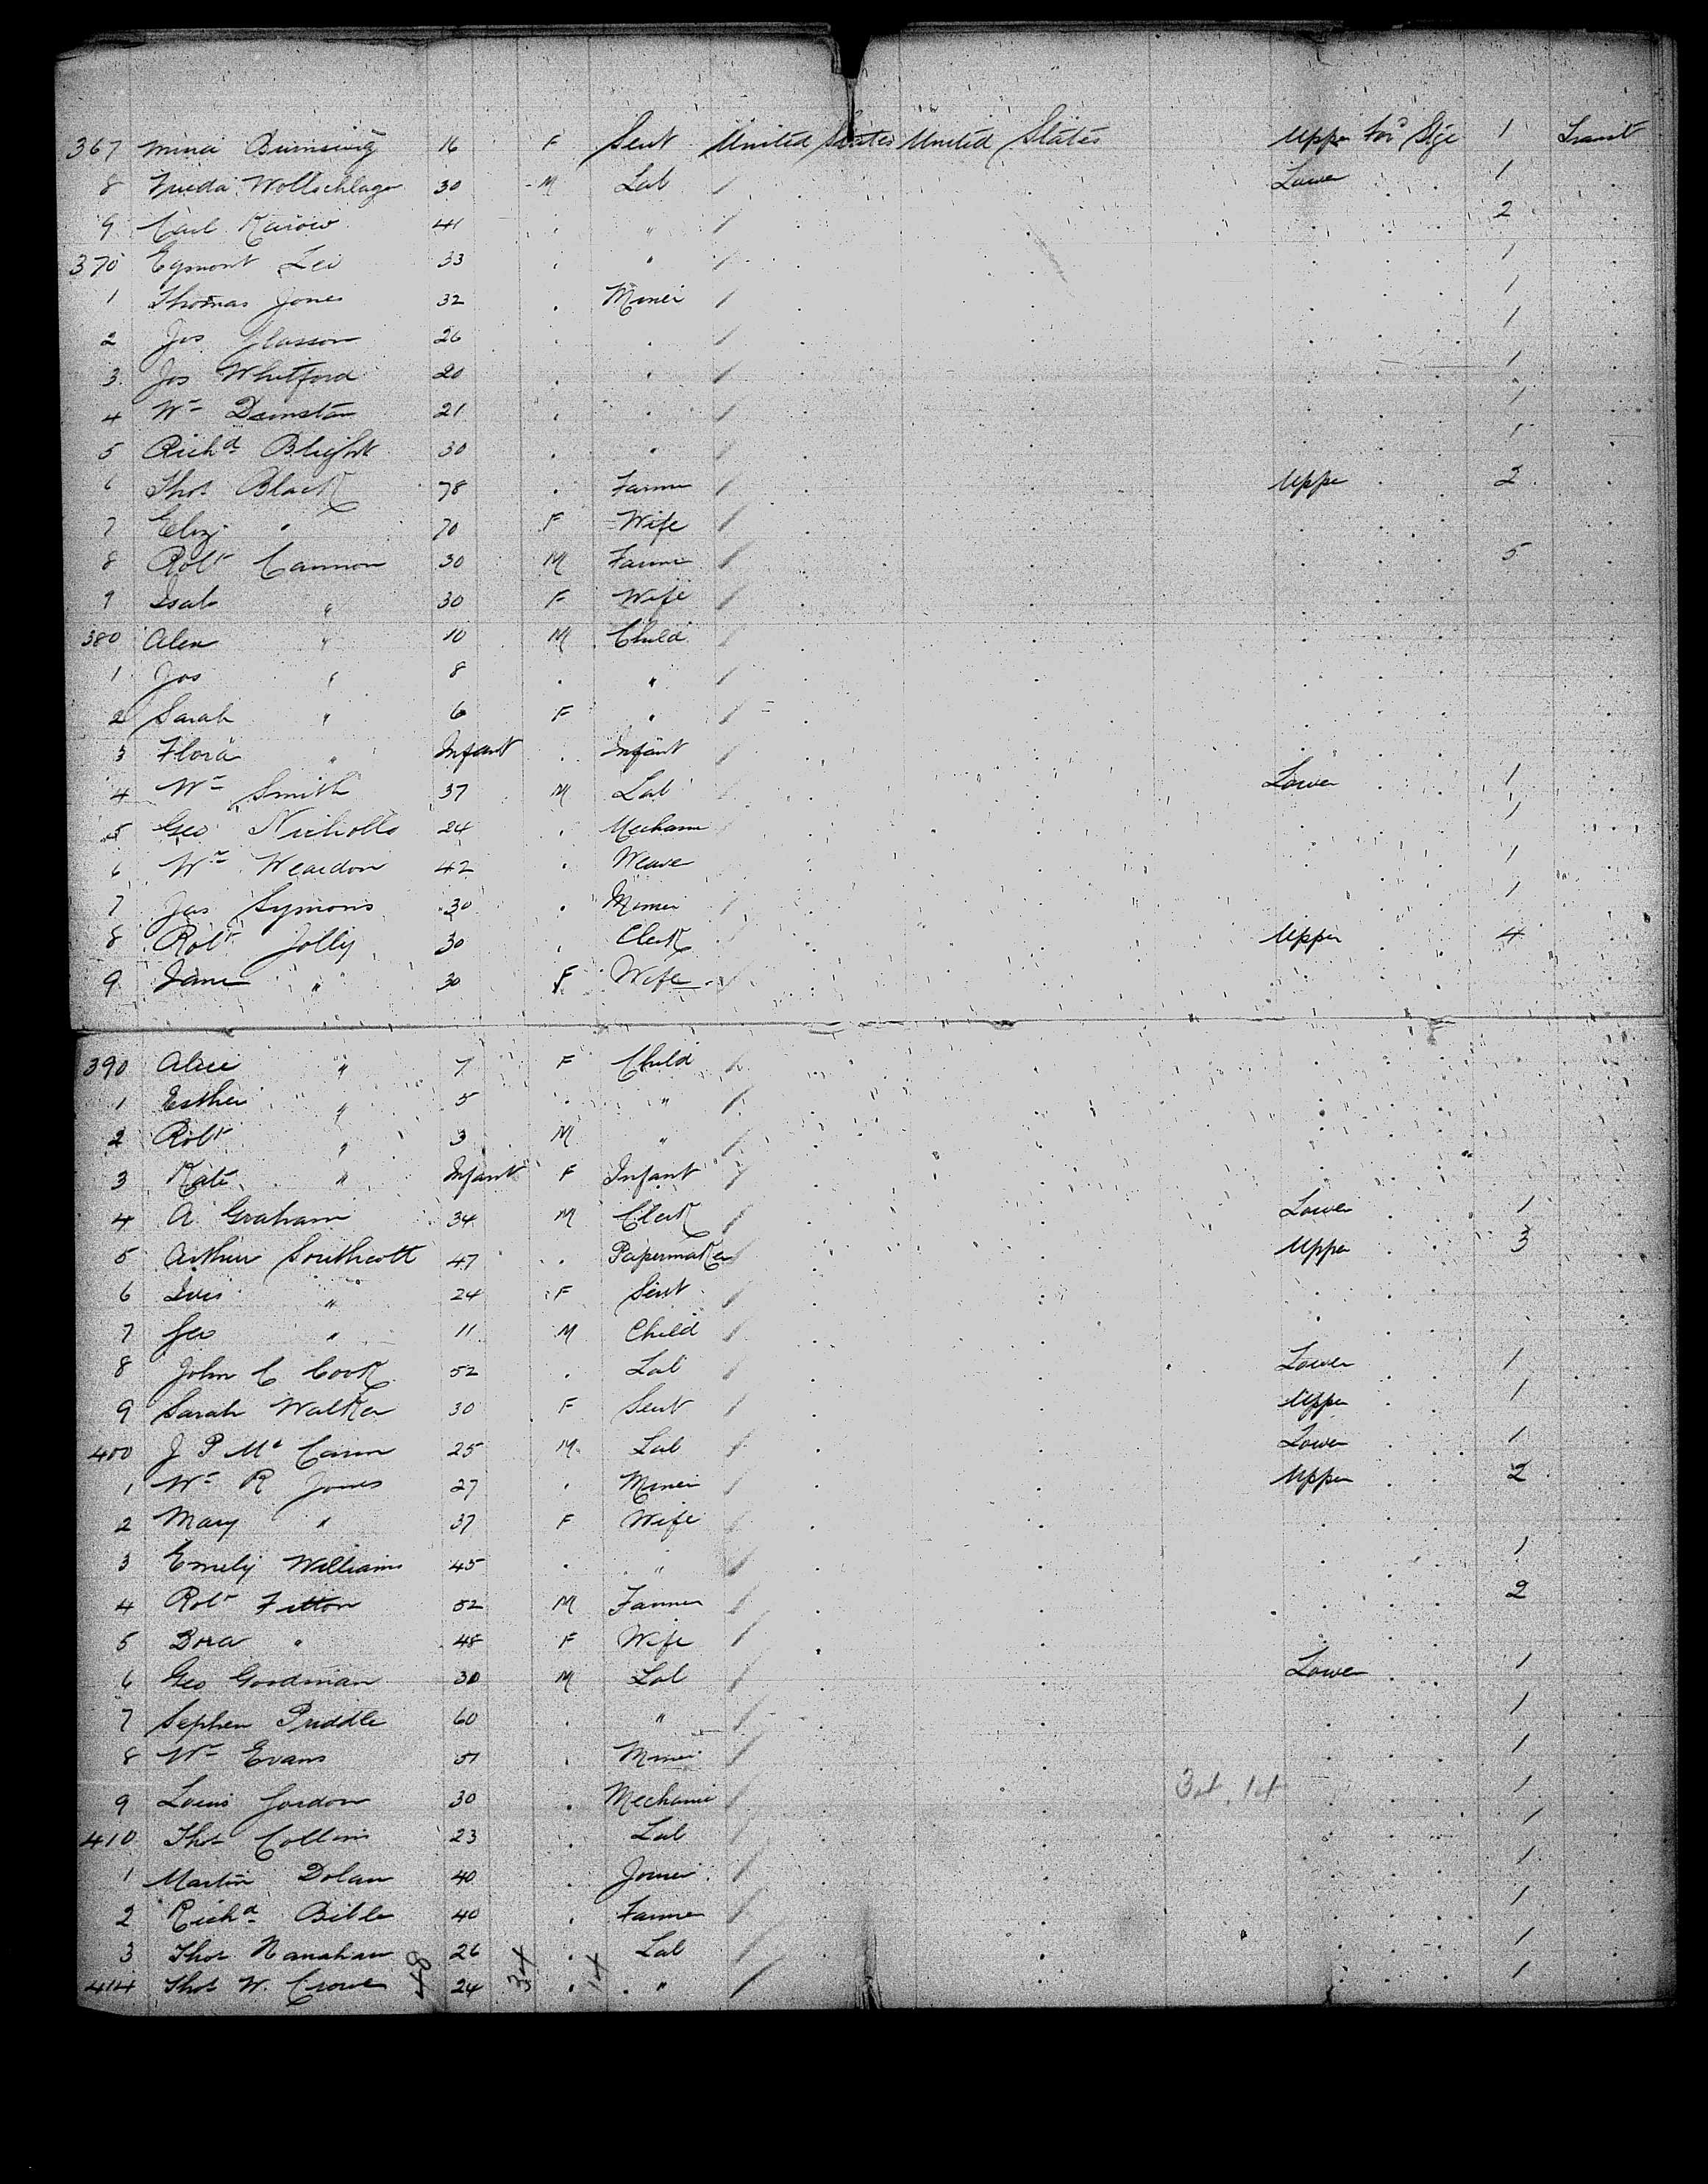 367 Mina 16 F Sert United States United States Upper For'd Stge 1 Transit
8 Frieda Wollschlager 30 M Lab / . . Lower . . 1 .
9 Carl Karow 41 . " / . . . . . 2 .
370 Egmont 33 . " / . . . . . 1 .
1 Thomas Jones 32 . Miner / . . . . . 1 .
2 Jos Glasson 26 . . / . . . . . 1 .
3 Jos Whitford 20 . " / . . . . . 1 .
4 Wm 21 . . / . . . . . 1 .
5 Richd Blight 30 . " / . . . . . 1 .
6 Thos Black 78 . Farmer / . . Upper . . 2 .
7 Eliz " 70 F Wife / . . . . . .
8 Robt Cannon 30 M Farmer / . . . . . 5 .
9 Isab " 30 F Wife / . . . . . .
380 Alex " 10 M Child / . . . . . .
1 Jos " 8 . " / . . . . . .
2 Sarah " 6 F " / . . . . . .
3 Flora " Infant . Infant / . . . . . .
4 Wm Smith 37 M Lab / . . Lower . . 1 .
5 Geo Nicholls 24 . Mechanic / . . . . . 1 .
6 Wm Weardon 42 . Weaver / . . . . . 1 .
7 Jas Symons 30 . Miner / . . . . . 1 .
8 Robt Jolly 30 . Clerk / . . Upper . . 4 .
9 Jane " 30 F Wife / . . . . . .
390 Alice " 7 F Child / . . . . . .
1 Esther " 5 . " / . . . . . .
2 Robt " 3 M " / . . . . . .
3 Kate " Infant F Infant / . . . . . .
4 A. Graham 34 M Clerk / . . Lower . . 1 .
5 Arthur Southcott 47 . Papermaker / . . Upper . . 3 .
6 " 24 F Sert / . . . . . .
7 Geo " 11 M Child / . . . . . .
8 John C Cook 52 . Lab / . . Lower . . 1 .
9 Sarah Walker 30 F Sert / . . Upper . . 1 .
400 J P Mc 25 M Lab / . . Lower . . 1 .
1 Wm R Jones 27 . Miner / . . Upper . . 2 .
2 Mary " 37 F Wife / . . . . . .
3 Emily Williams 45 . " / . . . . . 1 .
4 Robt Fitton 52 M Farmer / . . . . . 2 .
5 Dora " 48 F Wife / . . . . . .
6 Geo Goodman 30 M Lab / . . Lower . . 1 .
7 Stephen Priddle 60 . " / . . . . . 1 .
8 Wm Evans 51 . Miner / . . . . . 1 .
9 Louis Gordon 30 . Mechanic / . . . . . 1 .
410 Thos Collins 23 . Lab / . . . . . 1 .
1 Martin Dolan 40 . Joiner / . . . . . 1 .
2 Richd Bible 40 . Farmer / . . . . . 1 .
3 Thos Hanahan 26 . Lab / . . . . . 1 .
414 Thos W. Crowe 24 . " / . . . . . 1 .
48 34 14